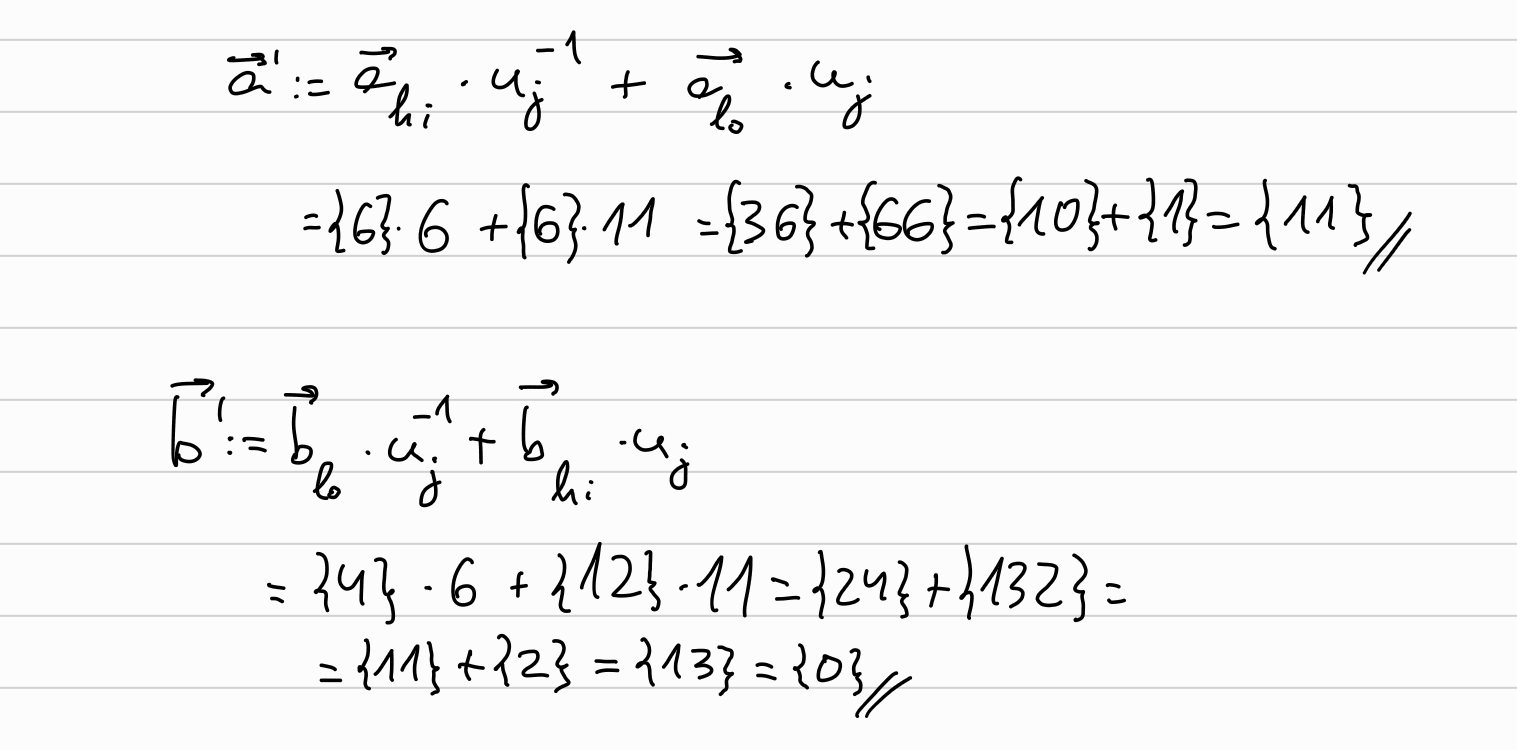 $\vec{a}' := \vec{a}_{hi} \cdot u_j^{-1} + \vec{a}_{lo} \cdot u_j$
$= \{6\} \cdot 6 + \{6\} \cdot 11 = \{36\} + \{66\} = \{10\} + \{1\} = \{11\} //$
$\vec{b}' := \vec{b}_{lo} \cdot u_j^{-1} + \vec{b}_{hi} \cdot u_j$
$= \{4\} \cdot 6 + \{12\} \cdot 11 = \{24\} + \{132\} =$
$= \{11\} + \{2\} = \{13\} = \{0\} //$